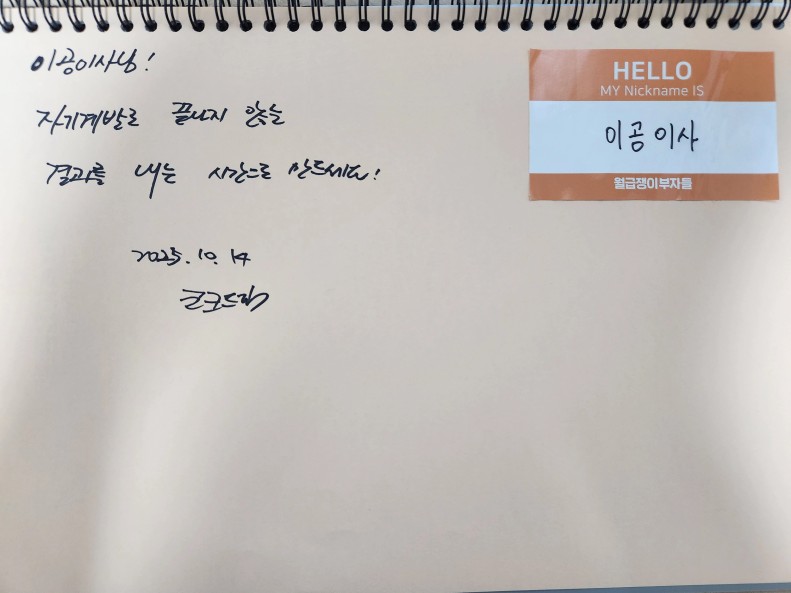 이공이사님!
자기계발로 끝나지 않는
결과를 내는 시간으로 만드세요!
2025. 10. 14
코크드림
HELLO
MY Nickname IS
이공이사
월급쟁이부자들